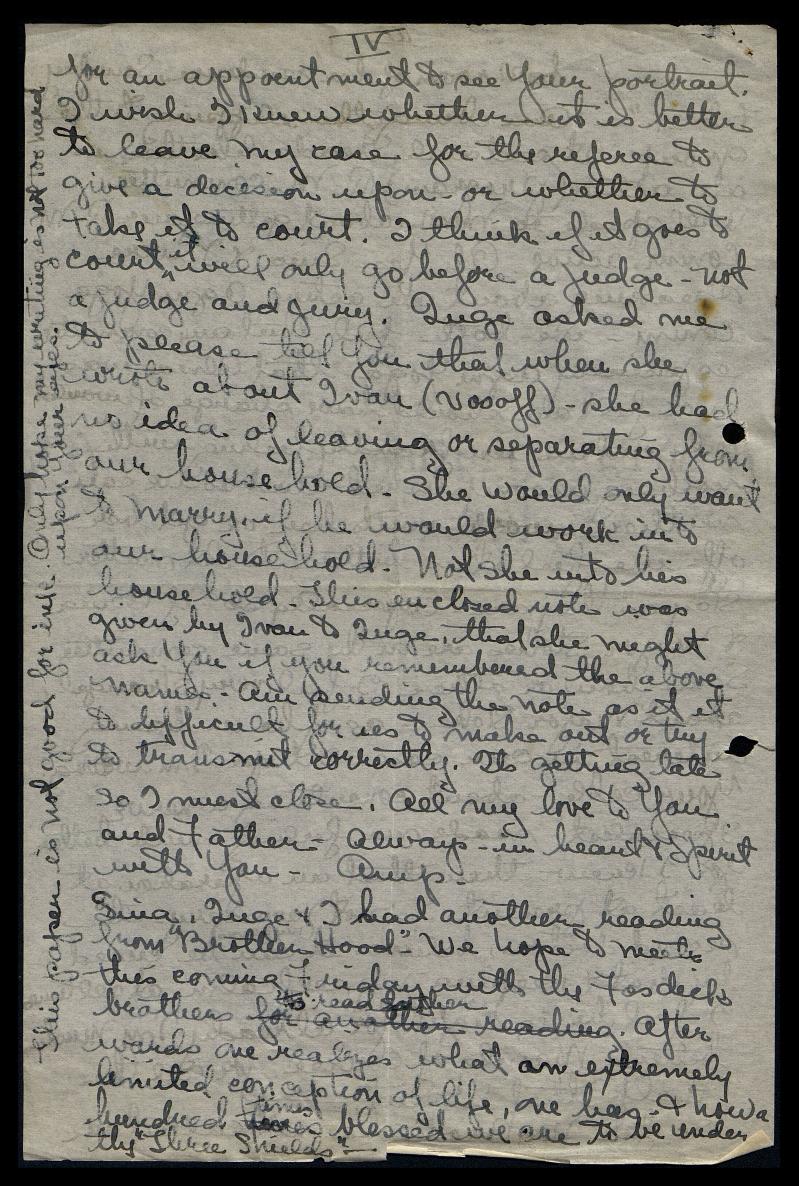 IV
for an appointment to see Your portrait.
I wish I knew whether it is better
to leave my case for the referee to
give a decision upon - or whether to
take it to court. I think if it goes to
court, it will only go before a judge - not
a judge and jury. Inge asked me
to please tell You that when she
wrote about Ivan (Vosoff) - she had
no idea of leaving or separating from
our household. She would only want
to marry, if he would work into
our household. Not she into his
household. This enclosed note was
given by Ivan to Inge, that she might
ask You if you remembered the above
names. - Am sending the note as it it
to difficult for us to make out or try
to transmit correctly. Its getting late
so I must close. All my love to You
and Father - always - in heart & Spirit
with You -
Sina, Inge & I had another reading
from "Brotherhood" - We hope to meet
this coming Friday with the Fosdick
brothers for another reading. After
to read
wards one realizes what an extremely
limited conception of life, one has - & how a
hundred times blessed we are to be under
the "Three Shields" -
This paper is not good for ink. Only hope my writing is not too hard
upon Your eyes.